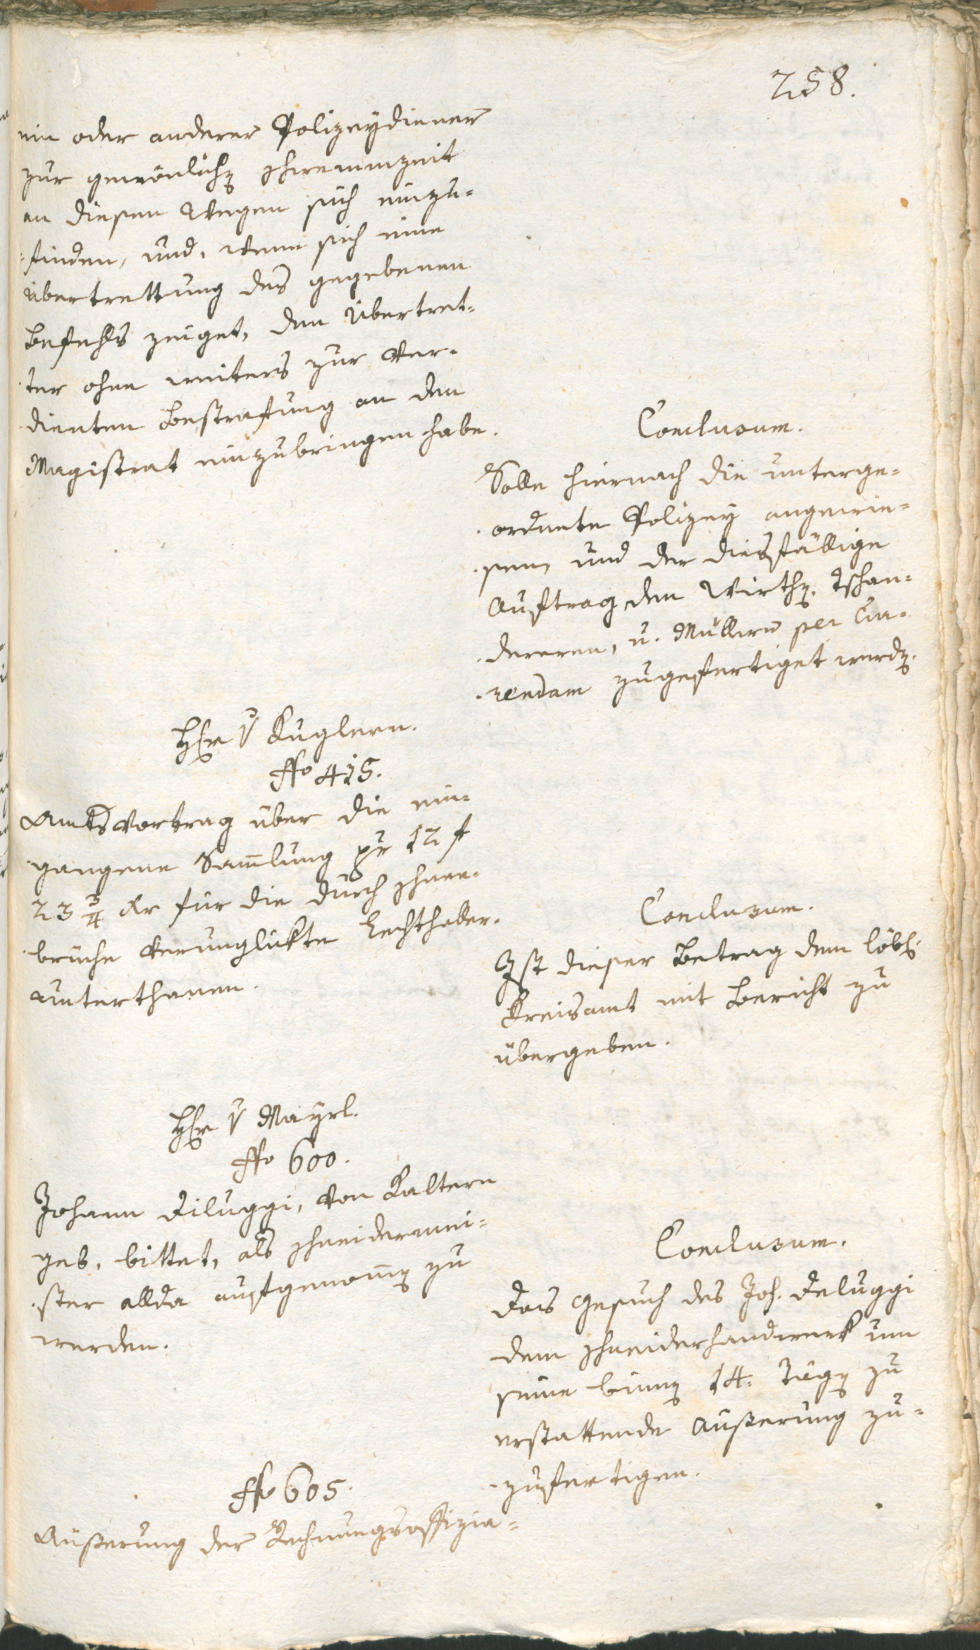 258.
ein oder anderer Polizeydiener
zur gewönlichen Schwemmzeit
an diesen Wegen sich einzu-
finden, und, wenn sich eine
Übertrettung des gegebenen
Befehls zeiget, den Übertret-
ter ohne weiters zur ver-
dienten Bestrafung an den
Magistrat einzubringen habe.
Conclusum.
Solle hiernach die unterge-
ordnete Polizey angewie-
sen, und der diesfällige
Auftrag den Wirthen,
u. Müllern per Cur-
rendam zugefertiget werden.
Herr v Kuglern.
Nro 415.
Amtsvortrag über die ein-
gangene Sam̄lung pr 12 f
23 3/4 kr für die durch Schnee-
brüche verunglükte Lechthaler-
Unterthanen.
Conclusum.
Ist dieser Betrag dem löbl.
Kreisamt mit Bericht zu
übergeben.
Herr v Mayrl.
Nro 600.
Johann Diluggi, von Kaltern
geb. bittet, als Schneidermei-
ster allda aufgenom̄en zu
werden.
Conclusum.
Das Gesuch des Joh. Deluggi
dem Schneiderhandwerk um
seine binnen 14. Tägen zu
erstattende Äußerung zu-
zufertigen.
Nro 605.
Äußerung der Rechnungsoffizia-